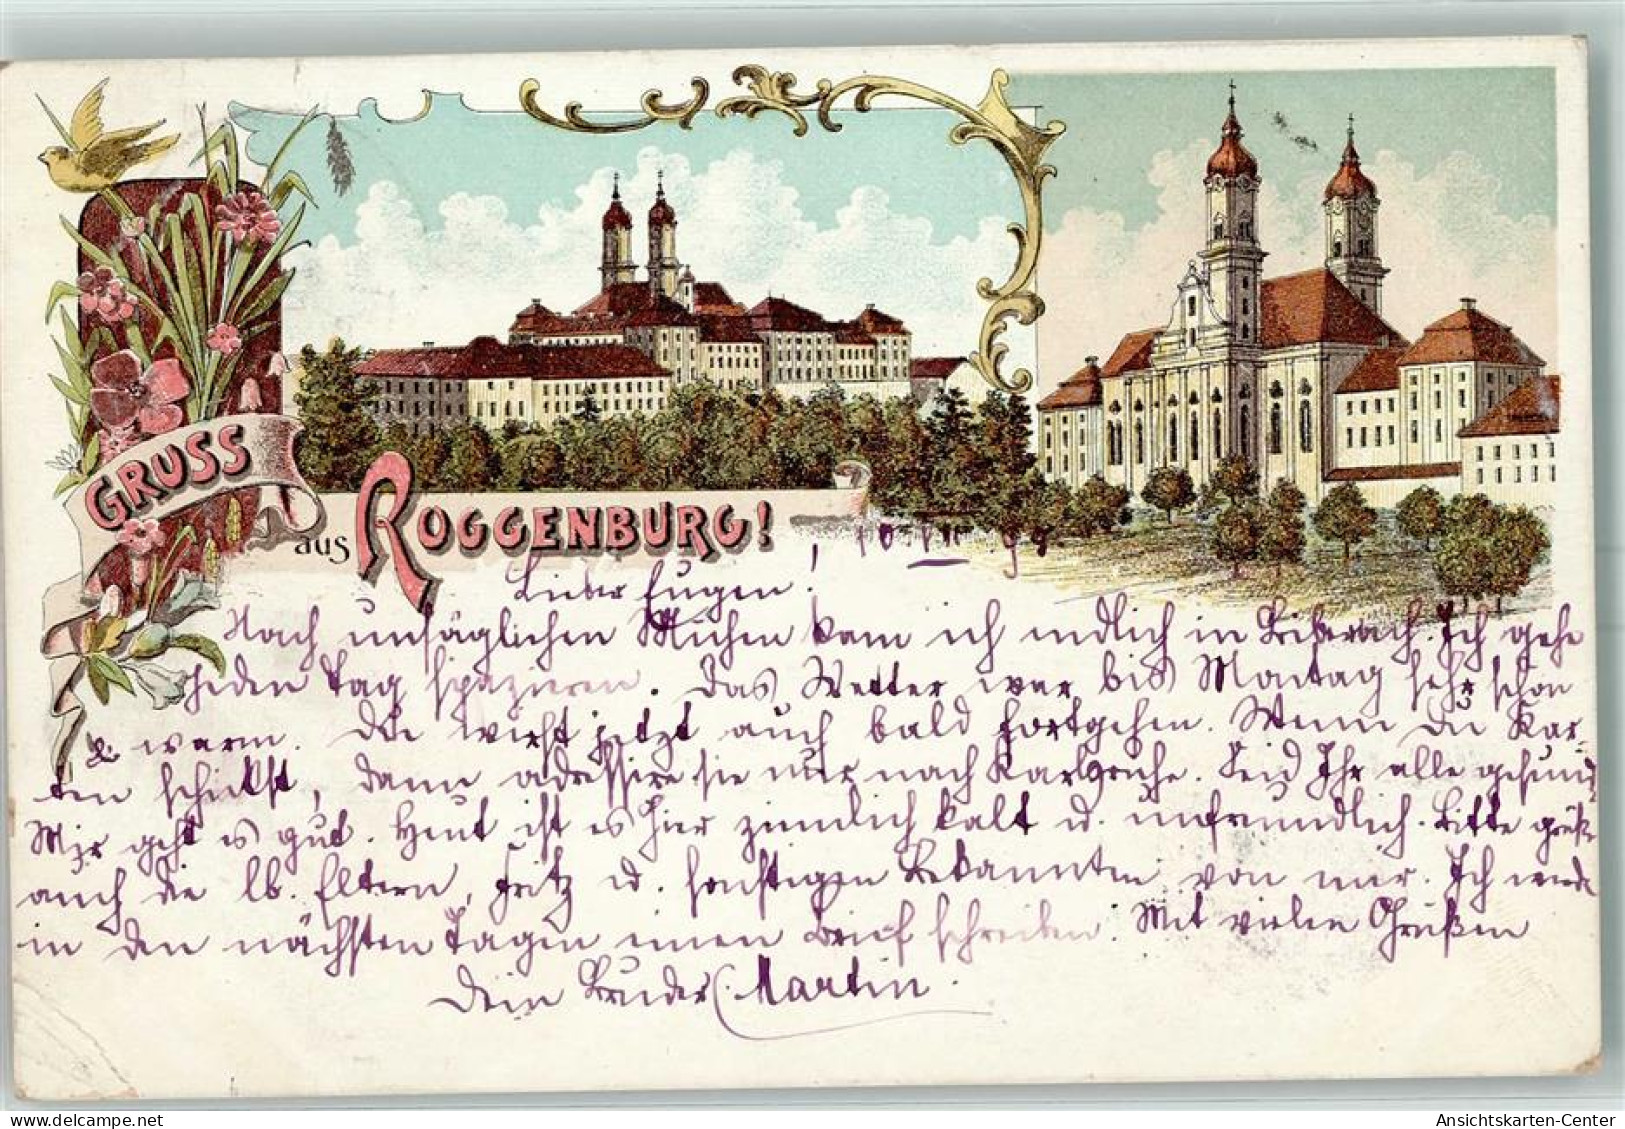 GRUSS
aus ROGGENBURG!
Lieber Eugen!
Nach unsäglichen Mühen kam ich endlich in Biberach. Ich gehe
jeden Tag spazieren. Das Wetter war bis Montag sehr schön
& warm. Du wirst jetzt auch bald fortgehen. Wenn Du Kar-
ten schickst, dann adressire sie nur nach Karlsruhe. Seid Ihr alle gesund
Mir geht es gut. Heut ist es hier ziemlich kalt u. unfreundlich. Bitte grüße
auch die lb. Eltern, Fritz u. sonstigen Bekannten von mir. Ich werde
in den nächsten Tagen einen Brief schreiben. Mit vielen Grüßen
Dein Bruder Martin.
Ansichtskarten-Center